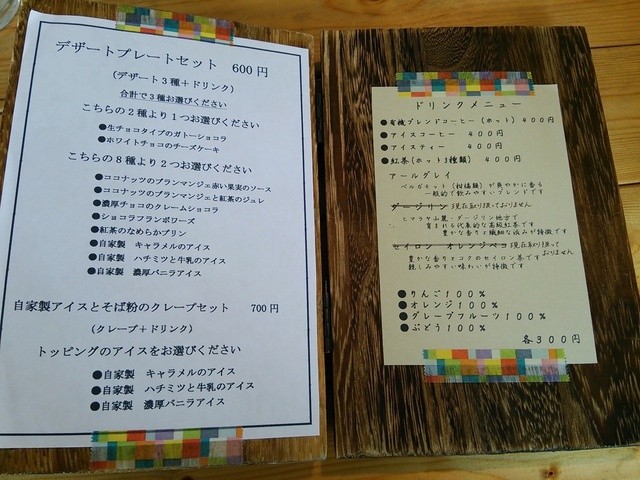 デザートプレートセット　600円
（デザート３種＋ドリンク）
合計で３種お選びください
こちらの２種より１つお選びください
●生チョコタイプのガトーショコラ
●ホワイトチョコのチーズケーキ
こちらの８種より２つお選びください
●ココナッツのブランマンジェ赤い果実のソース
●ココナッツのブランマンジェと紅茶のジュレ
●濃厚チョコのクレームショコラ
●ショコラフランボワーズ
●紅茶のなめらかプリン
●自家製　キャラメルのアイス
●自家製　ハチミツと牛乳のアイス
●自家製　濃厚バニラアイス
自家製アイスとそば粉のクレープセット　700円
（クレープ＋ドリンク）
トッピングのアイスをお選びください
●自家製　キャラメルのアイス
●自家製　ハチミツと牛乳のアイス
●自家製　濃厚バニラアイス
ドリンクメニュー
●有機ブレンドコーヒー（ホット）４００円
●アイスコーヒー　４００円
●アイスティー　４００円
●紅茶（ホット３種類）　４００円
アールグレイ
ベルガモット（柑橘類）が爽やかに香る
一般的で飲みやすいブレンドです
ダージリン 現在取り扱っておりません
ヒマラヤ山麓・ダージリン地方で
育まれる代表的な高級紅茶です
豊かな香りと繊細な味みが特徴です
セイロン　オレンジペコ 現在取り扱っておりません
豊かな香りとコクのセイロン茶です
親しみやすい味わいが特徴です
●りんご１００％
●オレンジ１００％
●グレープフルーツ１００％
●ぶどう１００％
各３００円